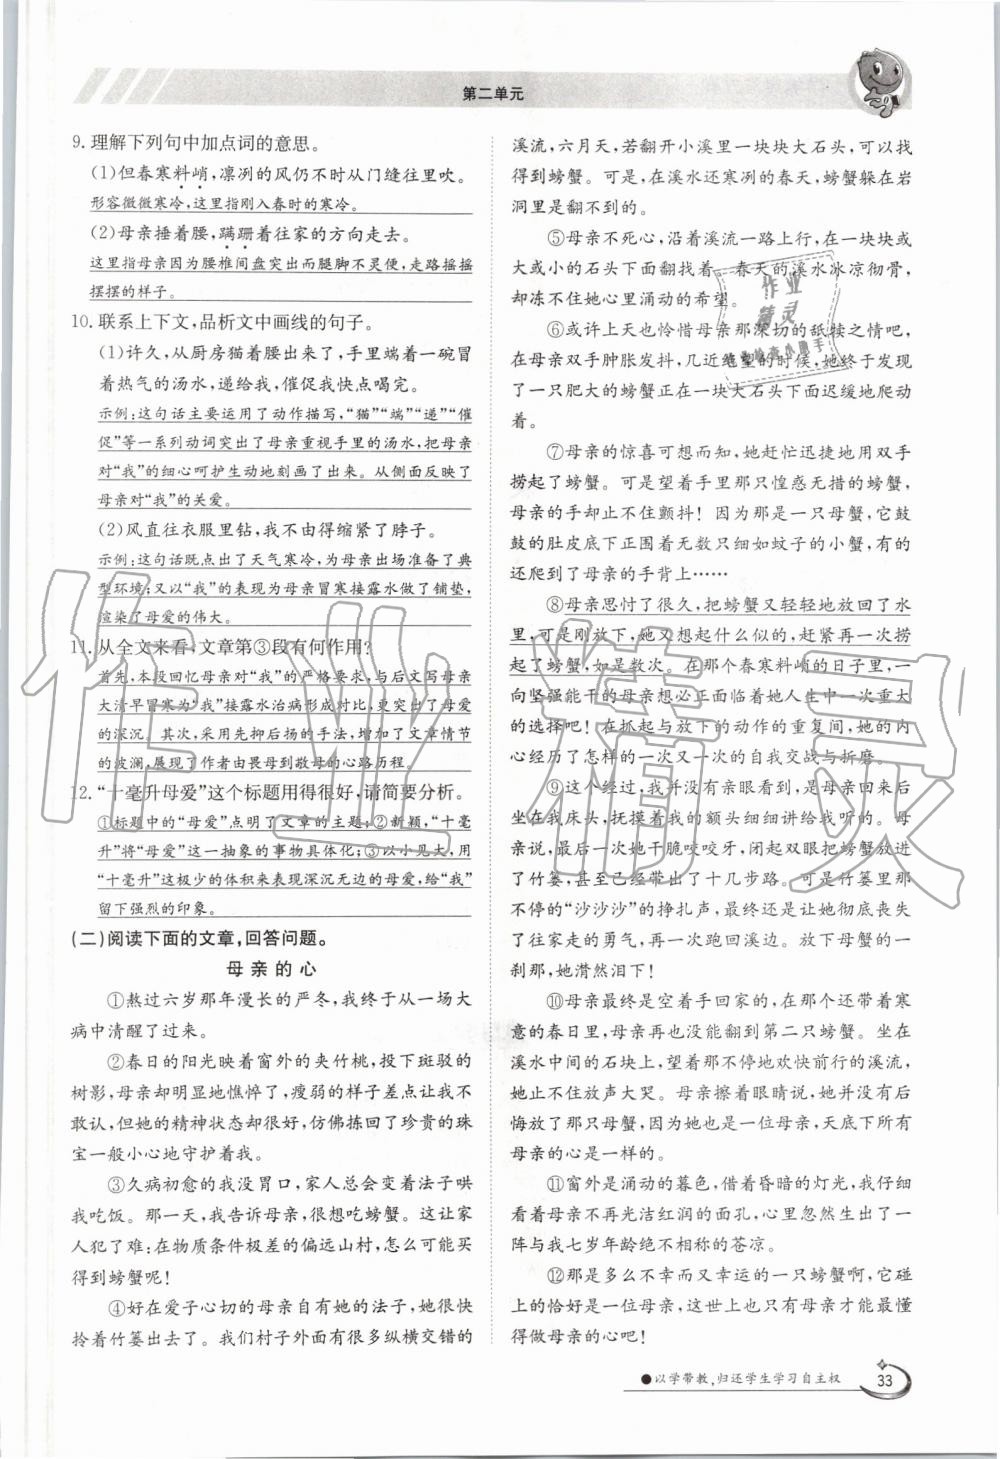 第二单元
9. 理解下列句中加点词的意思。
(1)但春寒料峭,凛冽的风仍不时从门缝往里吹。
形容微微寒冷,这里指刚入春时的寒冷。
(2)母亲捶着腰,蹒跚着往家的方向走去。
这里指母亲因为腰椎间盘突出而腿脚不灵便,走路摇摇
摆摆的样子。
10. 联系上下文,品析文中画线的句子。
(1)许久,从厨房猫着腰出来,手里端着一碗冒
着热气的汤水,递给我,催促我快点喝完。
示例:这句话主要运用了动作描写,“猫”“端”“递”“催
促”等一系列动词突出了母亲重视手里的汤水,把母亲
对“我”的细心呵护生动地刻画了出来。从侧面反映了
母亲对“我”的关爱。
(2)风直往衣服里钻,我不由得缩紧了脖子。
示例:这句话既点出了天气寒冷,为母亲出场准备了典
型环境;又以“我”的表现为母亲冒寒接露水做了铺垫,
渲染了母爱的伟大。
11. 从全文来看,文章第③段有何作用?
首先,本段回忆母亲对“我”的严格要求,与后文写母亲
大清早冒寒为“我”接露水治病形成对比,更突出了母爱
的深沉。其次,采用先抑后扬的手法,增加了文章情节
的波澜,展现了作者由畏母到敬母的心路历程。
12. “十毫升母爱”这个标题用得很好,请简要分析。
①标题中的“母爱”点明了文章的主题;②新颖,“十毫
升”将“母爱”这一抽象的事物具体化;③以小见大,用
“十毫升”这极少的体积来表现深沉无边的母爱,给“我”
留下强烈的印象。
(二)阅读下面的文章,回答问题。
母亲的心
①熬过六岁那年漫长的严冬,我终于从一场大
病中清醒了过来。
②春日的阳光映着窗外的夹竹桃,投下斑驳的
树影,母亲却明显地憔悴了,瘦弱的样子差点让我不
敢认,但她的精神状态却很好,仿佛拣回了珍贵的珠
宝一般小心地守护着我。
③久病初愈的我没胃口,家人总变着法子哄
我吃饭。那一天,我告诉母亲,很想吃螃蟹。这让家
人犯了难:在物质条件极差的偏远山村,怎么可能买
得到螃蟹呢!
④好在爱子心切的母亲自有她的法子,她很快
拎着竹篓出去了。我们村子外面有很多纵横交错的
溪流,六月天,若翻开小溪里一块块大石头,可以找
得到螃蟹。可是,在溪水还寒冽的春天,螃蟹躲在岩
洞里是翻不到的。
⑤母亲不死心,沿着溪流一路上行,在一块块或
大或小的石头下面翻找着。春天的溪水冰凉彻骨,
却冻不住她心里涌动的希望。
⑥或许上天也怜惜母亲那深切的舐犊之情吧,
在母亲双手肿胀发抖,几近绝望的时候,她终于发现
了一只肥大的螃蟹正在一块大石头下面迟缓地爬动
着。
⑦母亲的惊喜可想而知,她赶忙迅捷地用双手
捞起了螃蟹。可是望着手里那只惶惑无措的螃蟹,
母亲的手却止不住颤抖!因为那是一只母蟹,它鼓
鼓的肚皮底下正围着无数只细如蚊子的小蟹,有的
还爬到了母亲的手背上……
⑧母亲思忖了很久,把螃蟹又轻轻地放回了水
里,可是刚放下,她又想起什么似的,赶紧再一次捞
起了螃蟹,如是数次。在那个春寒料峭的日子里,一
向坚强能干的母亲想必正面临着她人生中一次重大
的选择吧!在抓起与放下的动作的重复间,她的内
心经历了怎样的一次又一次的自我交战与折磨。
⑨这个经过,我是没有亲眼看到,是母亲后来坐
在我床头,抚摸着我的额头细细讲给我听的。母
亲说,最后一次她干脆咬咬牙,闭起双眼把螃蟹放进
了竹篓,甚至已经带出了十几步路。可是竹篓里那
不停的“沙沙沙”的挣扎声,最终还是让她彻底丧失
了往家走的勇气,再一次跑回溪边。放下母蟹的一
刹那,她潸然泪下!
⑩母亲最终是空着手回家的,在那个还带着寒
意的春日里,母亲再也没能翻到第二只螃蟹。坐在
溪水中间的石块上,望着那不停地欢快前行的溪流,
她止不住放声大哭。母亲擦着眼睛说,她并没有后
悔放了那只母蟹,因为她也是一位母亲,天底下所有
母亲的心是一样的。
⑪窗外是涌动的暮色,借着昏暗的灯光,我仔细
看着母亲不再光洁红润的面孔,心里忽然生出了一
阵与我七岁年龄绝不相称的苍凉。
⑫那是多么不幸而又幸运的一只螃蟹啊,它碰
上的恰好是一位母亲,这世上也只有母亲才能最懂
得做母亲的心吧!
作业
精灵
●以学带教,归还学生学习自主权
33
作业精灵